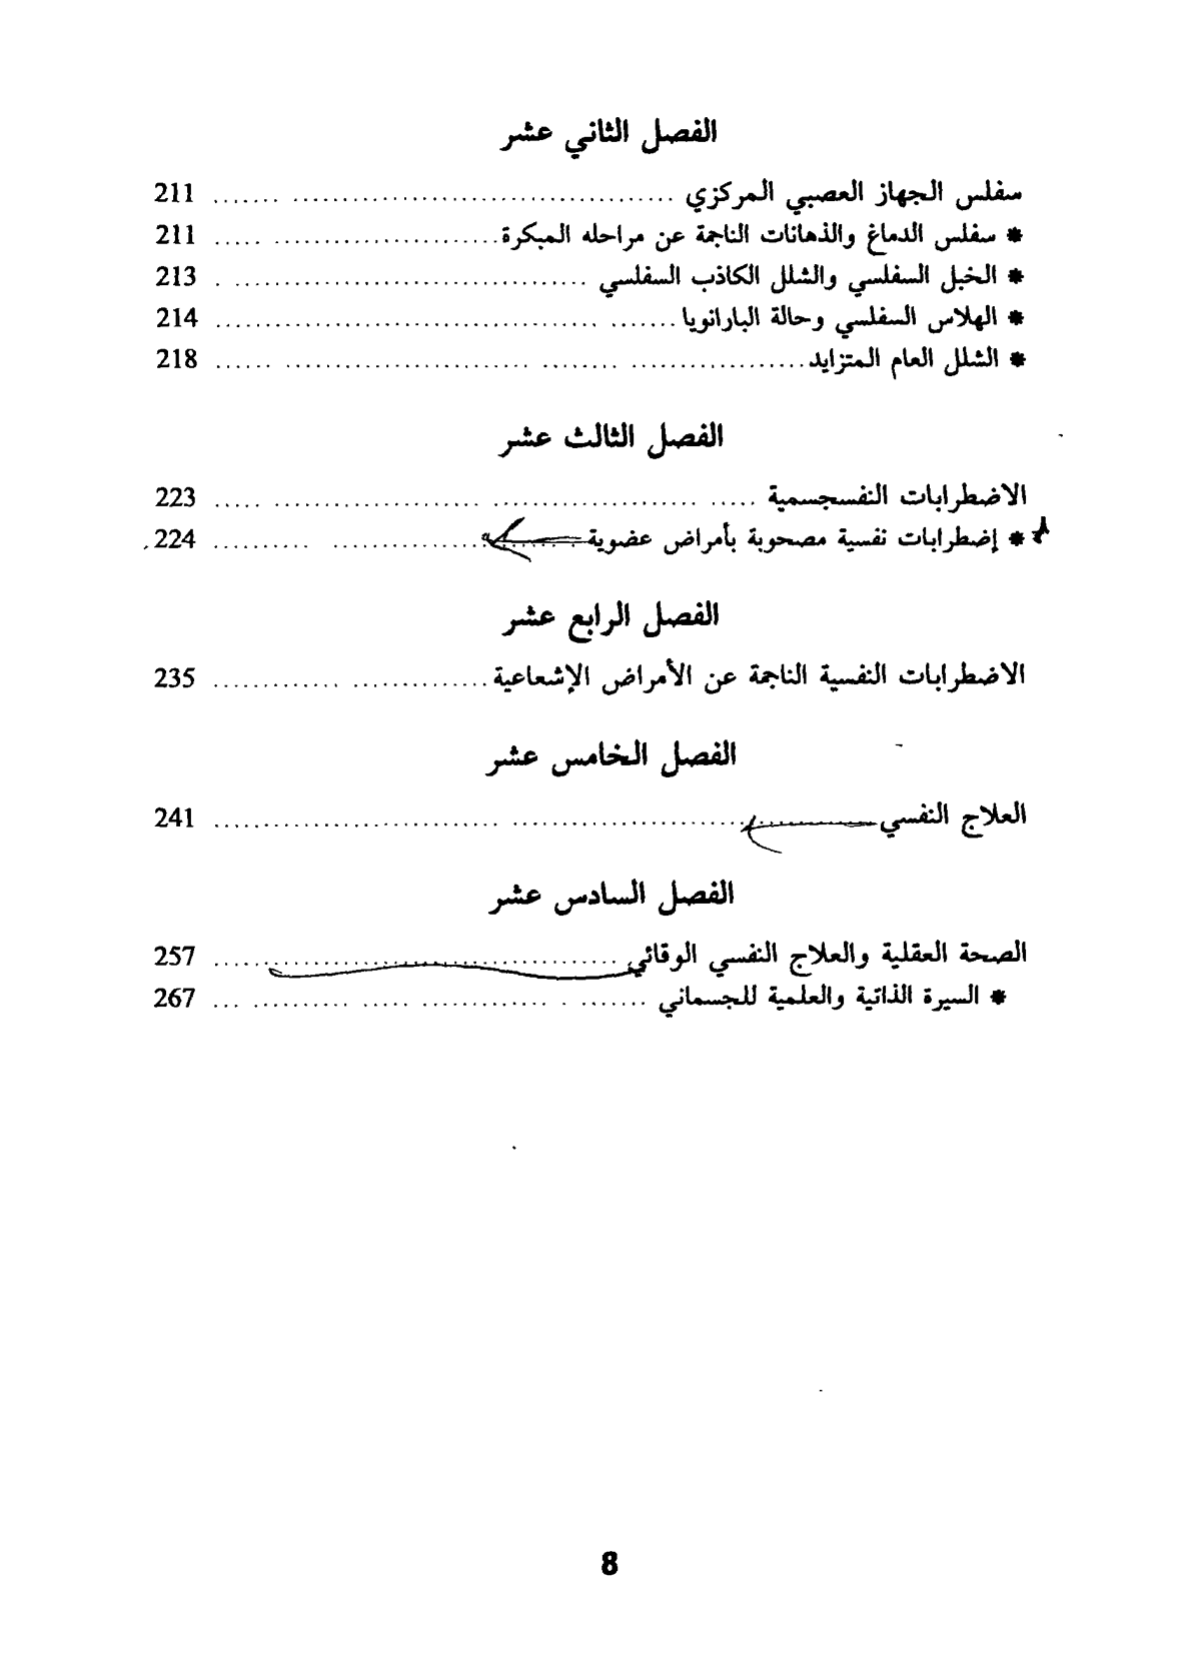 الفصل الثاني عشر
سفلس الجهاز العصبي المركزي ........................................ 211
* سفلس الدماغ والذهانات الناجمة عن مراحله المبكرة ............................ 211
* الخبل السفلسي والشلل الكاذب السفلسي ..................................... 213
* الهلاس السفلسي وحالة البارانويا ............................................. 214
* الشلل العام المتزايد ............................................................ 218
الفصل الثالث عشر
الاضطرابات النفسجسمية .................................................. 223
* إضطرابات نفسية مصحوبة بأمراض عضوية ............................... 224
الفصل الرابع عشر
الاضطرابات النفسية الناجمة عن الأمراض الإشعاعية ........................... 235
الفصل الخامس عشر
العلاج النفسي ............................................................ 241
الفصل السادس عشر
الصحة العقلية والعلاج النفسي الوقائي ........................................ 257
* السيرة الذاتية والعلمية للجسماني ........................................ 267
8